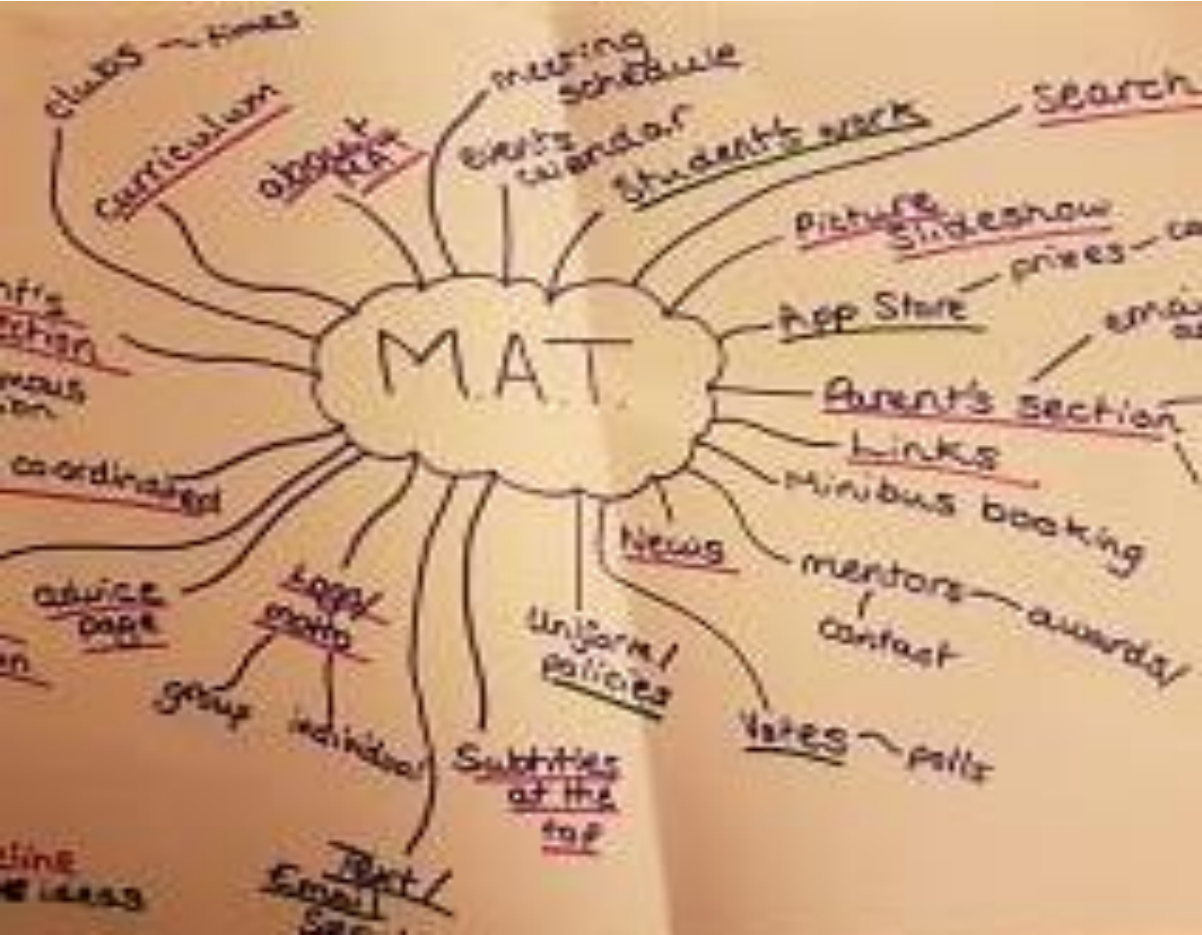 clubs ~ times
curriculum
about MAT
meeting
schedule
events
calendar
Student's work
Search
Picture
Slideshow
App Store
prizes
M.A.T.
Parent's section
Links
Minibus booking
News
mentors
awards/
contact
Votes ~ polls
Uniform/
policies
Subtitles
at the
top
Text/
Email
logo/
motto
group
individual
advice
page
co-ordinated
ideas